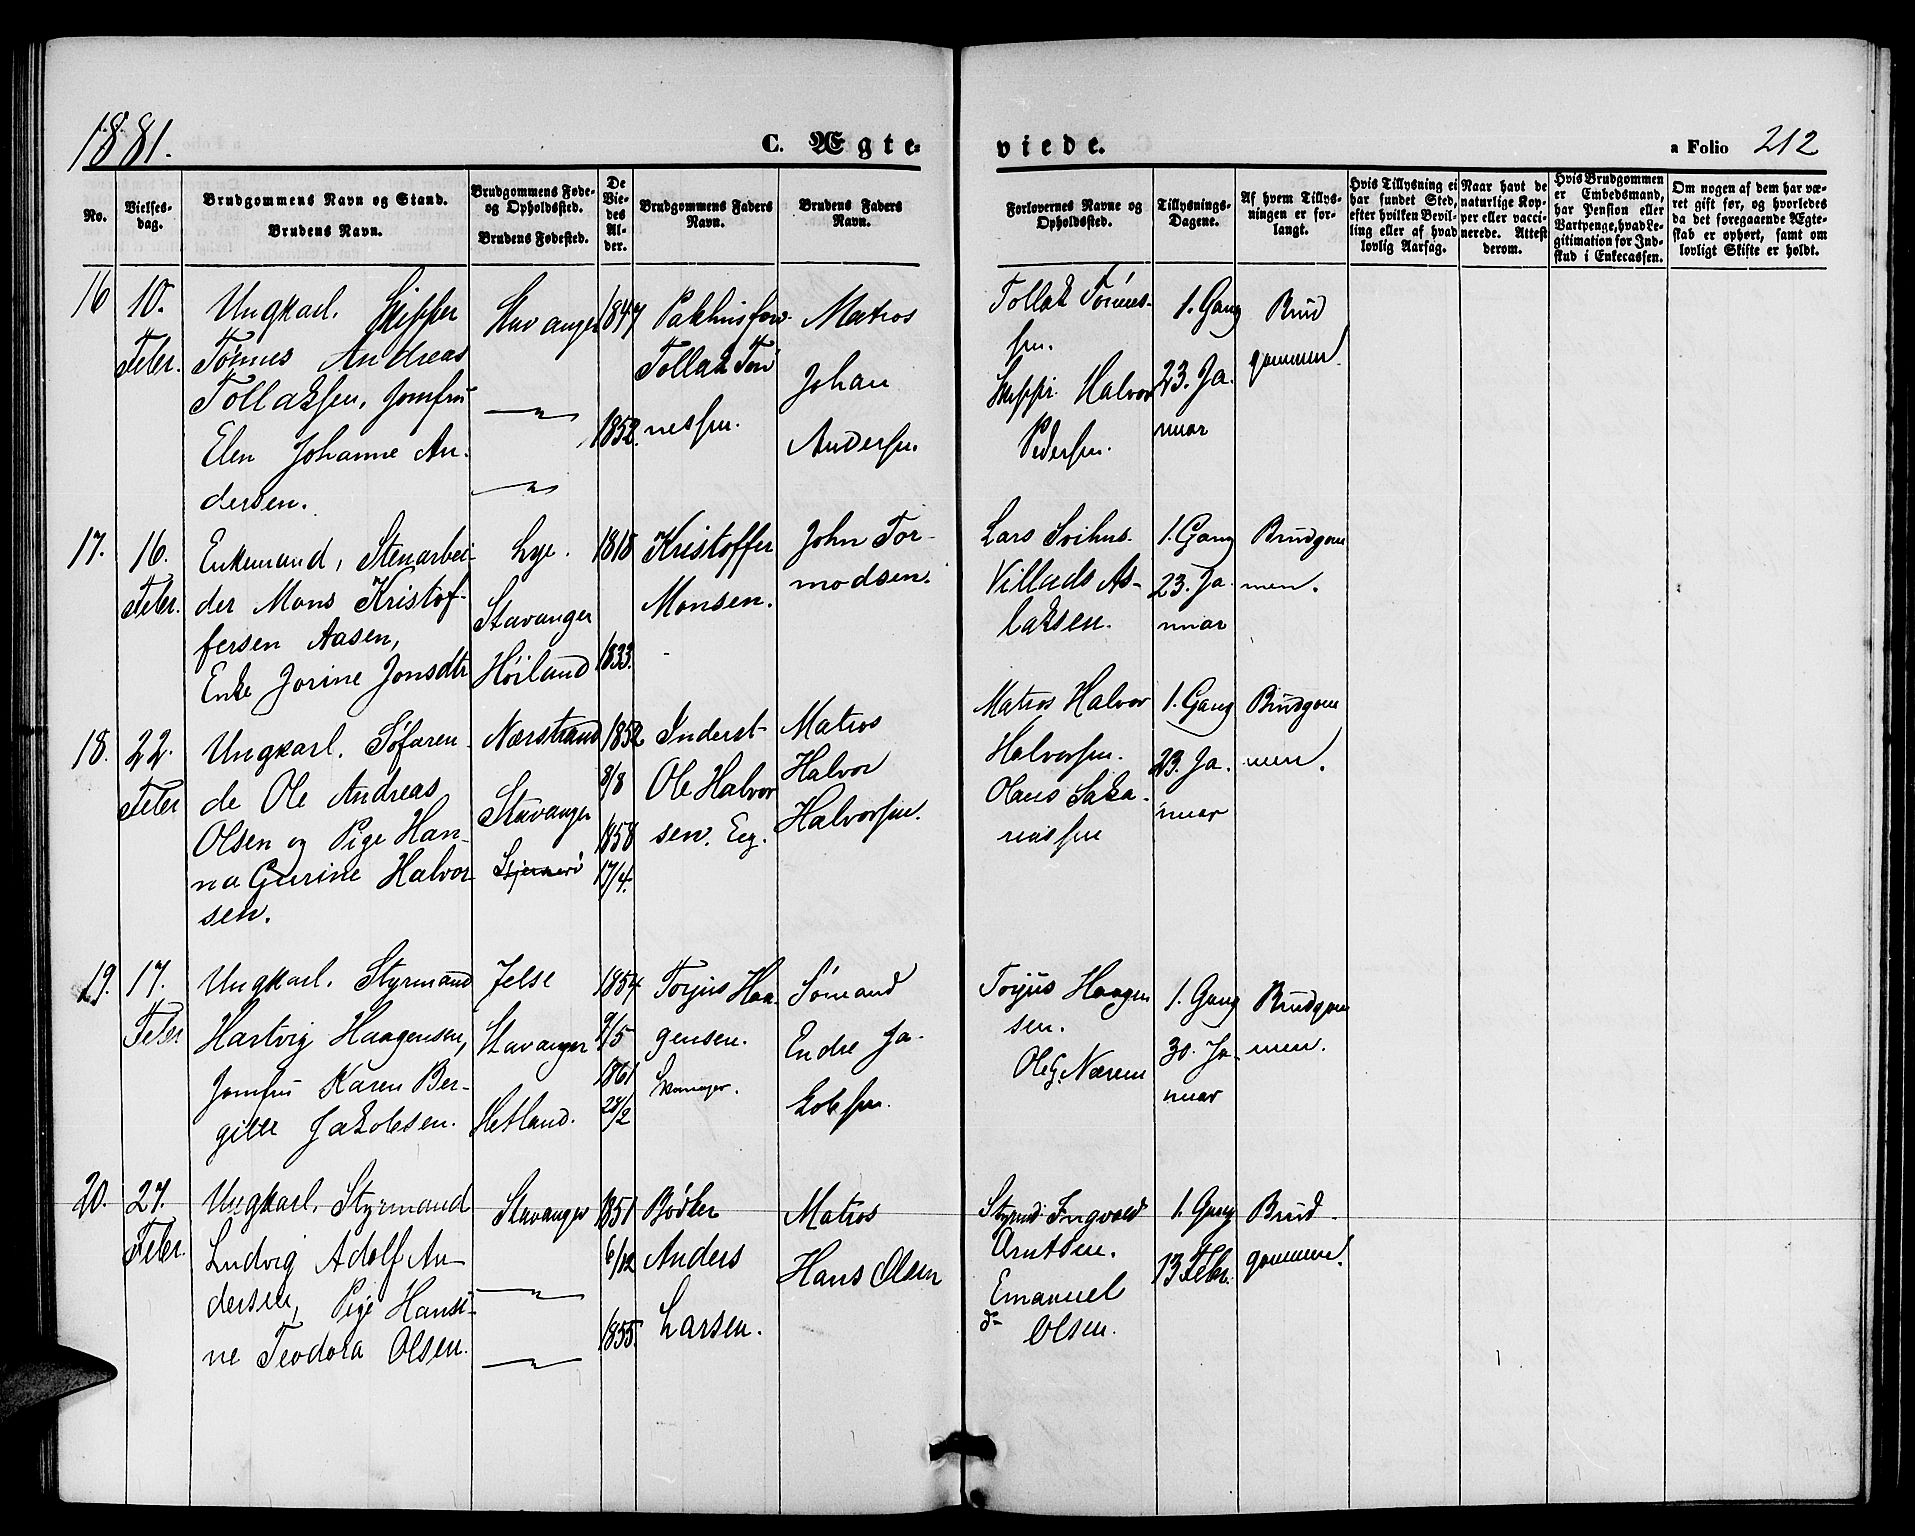 1881.
C. Ægte-
viede.
a Folio 212
No.
Vielses-
dag.
Brudgommens Navn og Stand.
Brudens Navn.
Brudgommens Føde-
og Opholdssted.
Brudens Fødested.
De
Vie-
des
Al-
der.
Brudgommens Faders
Navn.
Brudens Faders
Navn.
Forlovernes Navne og
Opholdssted.
Tillysnings-
Dagene.
Af hvem Tillys-
ningen er for-
langt.
Hvis Tillysning ei
har fundet Sted,
efter hvilken Bevil-
ling eller af hvad
lovlig Aarsag.
Naar havt de
naturlige Kop-
per eller vacci-
nerede. Attest
derom.
Hvis Brudgommen
er Embedsmand,
har Pension eller
Vartpenge, hvad Le-
gitimation for Ind-
skud i Enkecassen.
Om nogen af dem har væ-
ret gift før, og hvorledes
da det foregaaende Ægte-
skab er ophørt, samt om
lovligt Skifte er holdt.
16
10.
Febr.
Ungkarl. Skipper
Tønnes Andreas
Tollaksen, Jomfru
Elen Johanne An-
dersen.
Stavanger
—"—
—"—
1847
1852.
Pakhusforv.
Tollak Tøn
nessen.
Matros
Johan
Andersen.
Tollak Tønnes-
sen.
Skippr. Halvor
Pedersen.
1. Gang
23. Ja.
nuar
Brud
gommen.
17.
16.
Febr.
Enkemand, Stenarbei-
der Mons Kristof-
fersen Aasen,
Enke Jorine Jonsdtr
Lye.
Stavanger
Høiland
1818
1833.
Kristoffer
Monsen.
John Tor-
modsen.
Lars Svihus.
Villads As-
laksen.
1. Gang
23. Ja.
nuar
Brudgom
men.
18.
22.
Febr
Ungkarl. Søfaren-
de Ole Andreas
Olsen og Pige Han-
na Gurine Halvor-
sen.
Nærstrand
Stavanger
Stjernerø
1852
8/8
1858
17/4.
Inderst-
Ole Halvor
sen. Eeg.
Matros
Halvor
Halvorsen.
Matros Halvor
Halvorsen.
Olaus Saka-
riassen
1. Gang
23. Ja.
nuar
Brudgom
men.
19.
17.
Febr
Ungkarl. Styrmand
Hartvig Haagensen,
Jomfru Karen Ber-
gitte Jakobsen.
Jelse
Stavanger
Hetland.
1854
9/5
1861
28/2
Torjus Haa-
gensen.
Sømand
Endre Ja-
kobsen.
Torjus Haagen
sen.
Ole G. Nærem
1. Gang
30. Ja-
nuar
Brudgom
men.
20.
27.
Febr.
Ungkarl. Styrmand
Ludvig Adolf An-
dersen, Pige Hansi-
ne Teodora Olsen.
Stavanger
—"—
—"—
1851
6/12
1855.
Bødker
Anders
Larsen.
Matros
Hans Olsen
Styrmd. Ingvald
Arntsen.
Emanuel
do
Olsen.
1. Gang
13 Febr.
Brud-
gommen.